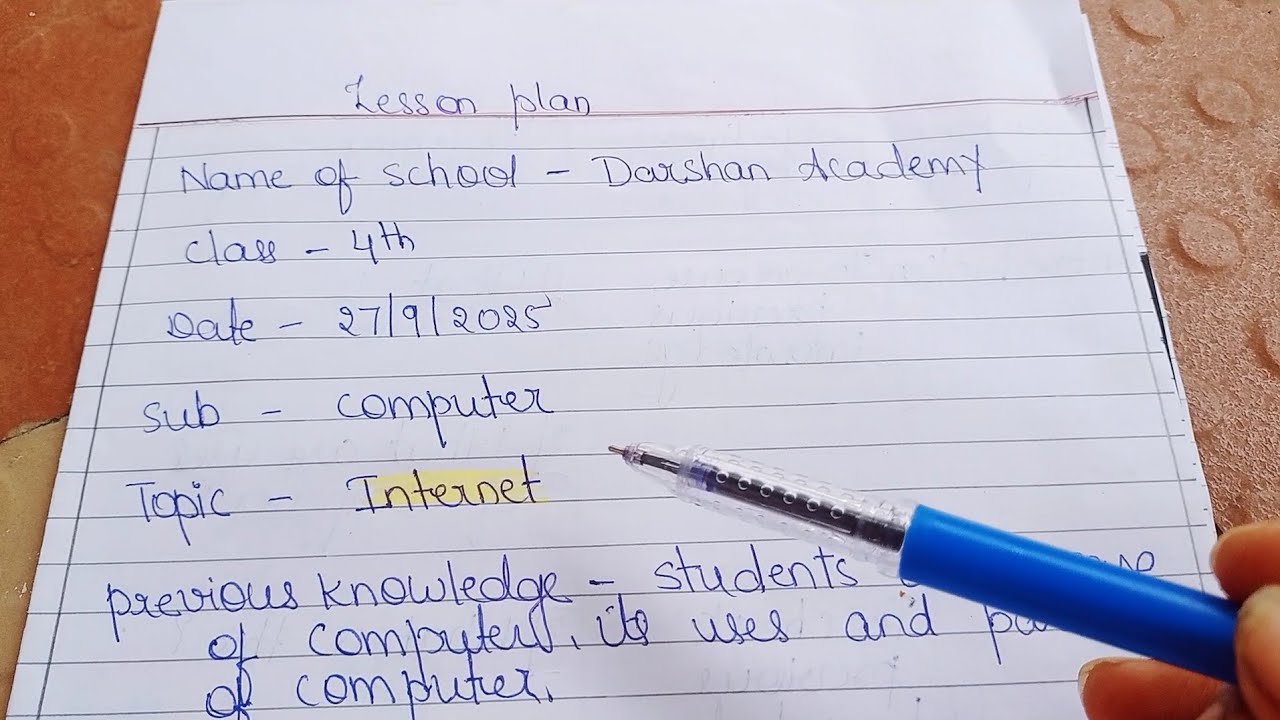 Lesson plan
Name of school - Darshan Academy
Class - 4th
Date - 27/9/2025
Sub - computer
Topic - Internet
previous knowledge - students
of computer, its uses and
of computer.